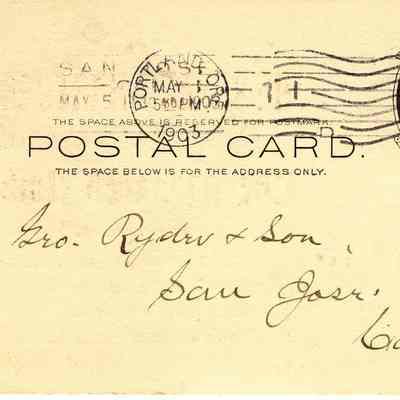 SAN
PORTLAND, ORE.
MAY 1
530 PM
1903
MAY 5
THE SPACE ABOVE IS RESERVED FOR POSTMARK.
POSTAL CARD.
THE SPACE BELOW IS FOR THE ADDRESS ONLY.
Geo. Ryder & Son,
San Jose.